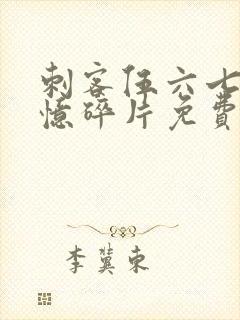 刺客伍六七
忆碎片免费
李冀东